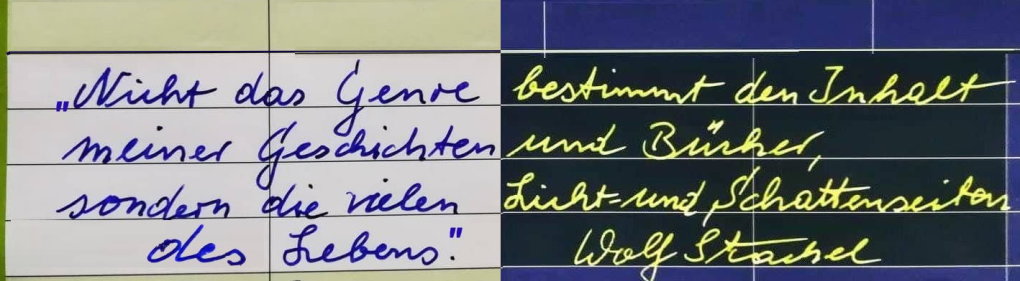 „Nicht das Genre bestimmt den Inhalt
meiner Geschichten und Bücher,
sondern die vielen Licht- und Schattenseiten
des Lebens." Wolf Stachel